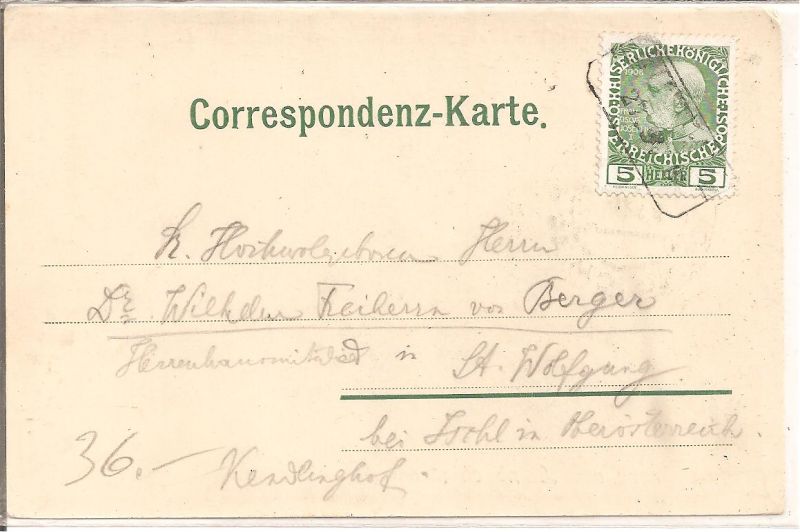 Correspondenz-Karte.
KAISERLICHE KÖNIGLICHE
ÖSTERREICHISCHE POST
1908
5 HELLER 5
Hochwolgeboren Herrn
Dr Wilhelm Freiherrn von Berger
Herrenhausmitglied in St. Wolfgang
bei Ischl in Oberösterreich.
36.—
Kendlinghof.